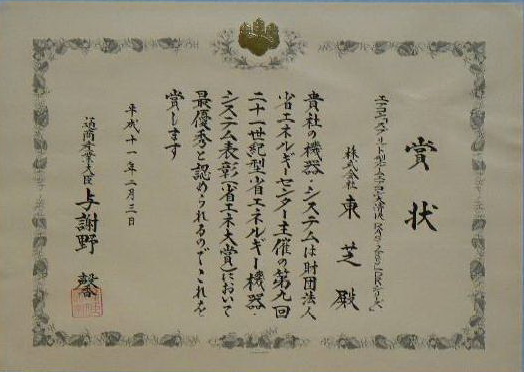 賞状
エアコン
株式会社 東芝 殿
貴社の機器・システムは財団法人
省エネルギーセンター主催の第九回
二十一世紀型省エネルギー機器
システム表彰(省エネ大賞)において
最優秀と認められるのでこれを
賞します
平成十一年二月三日
通商産業大臣 与謝野 馨